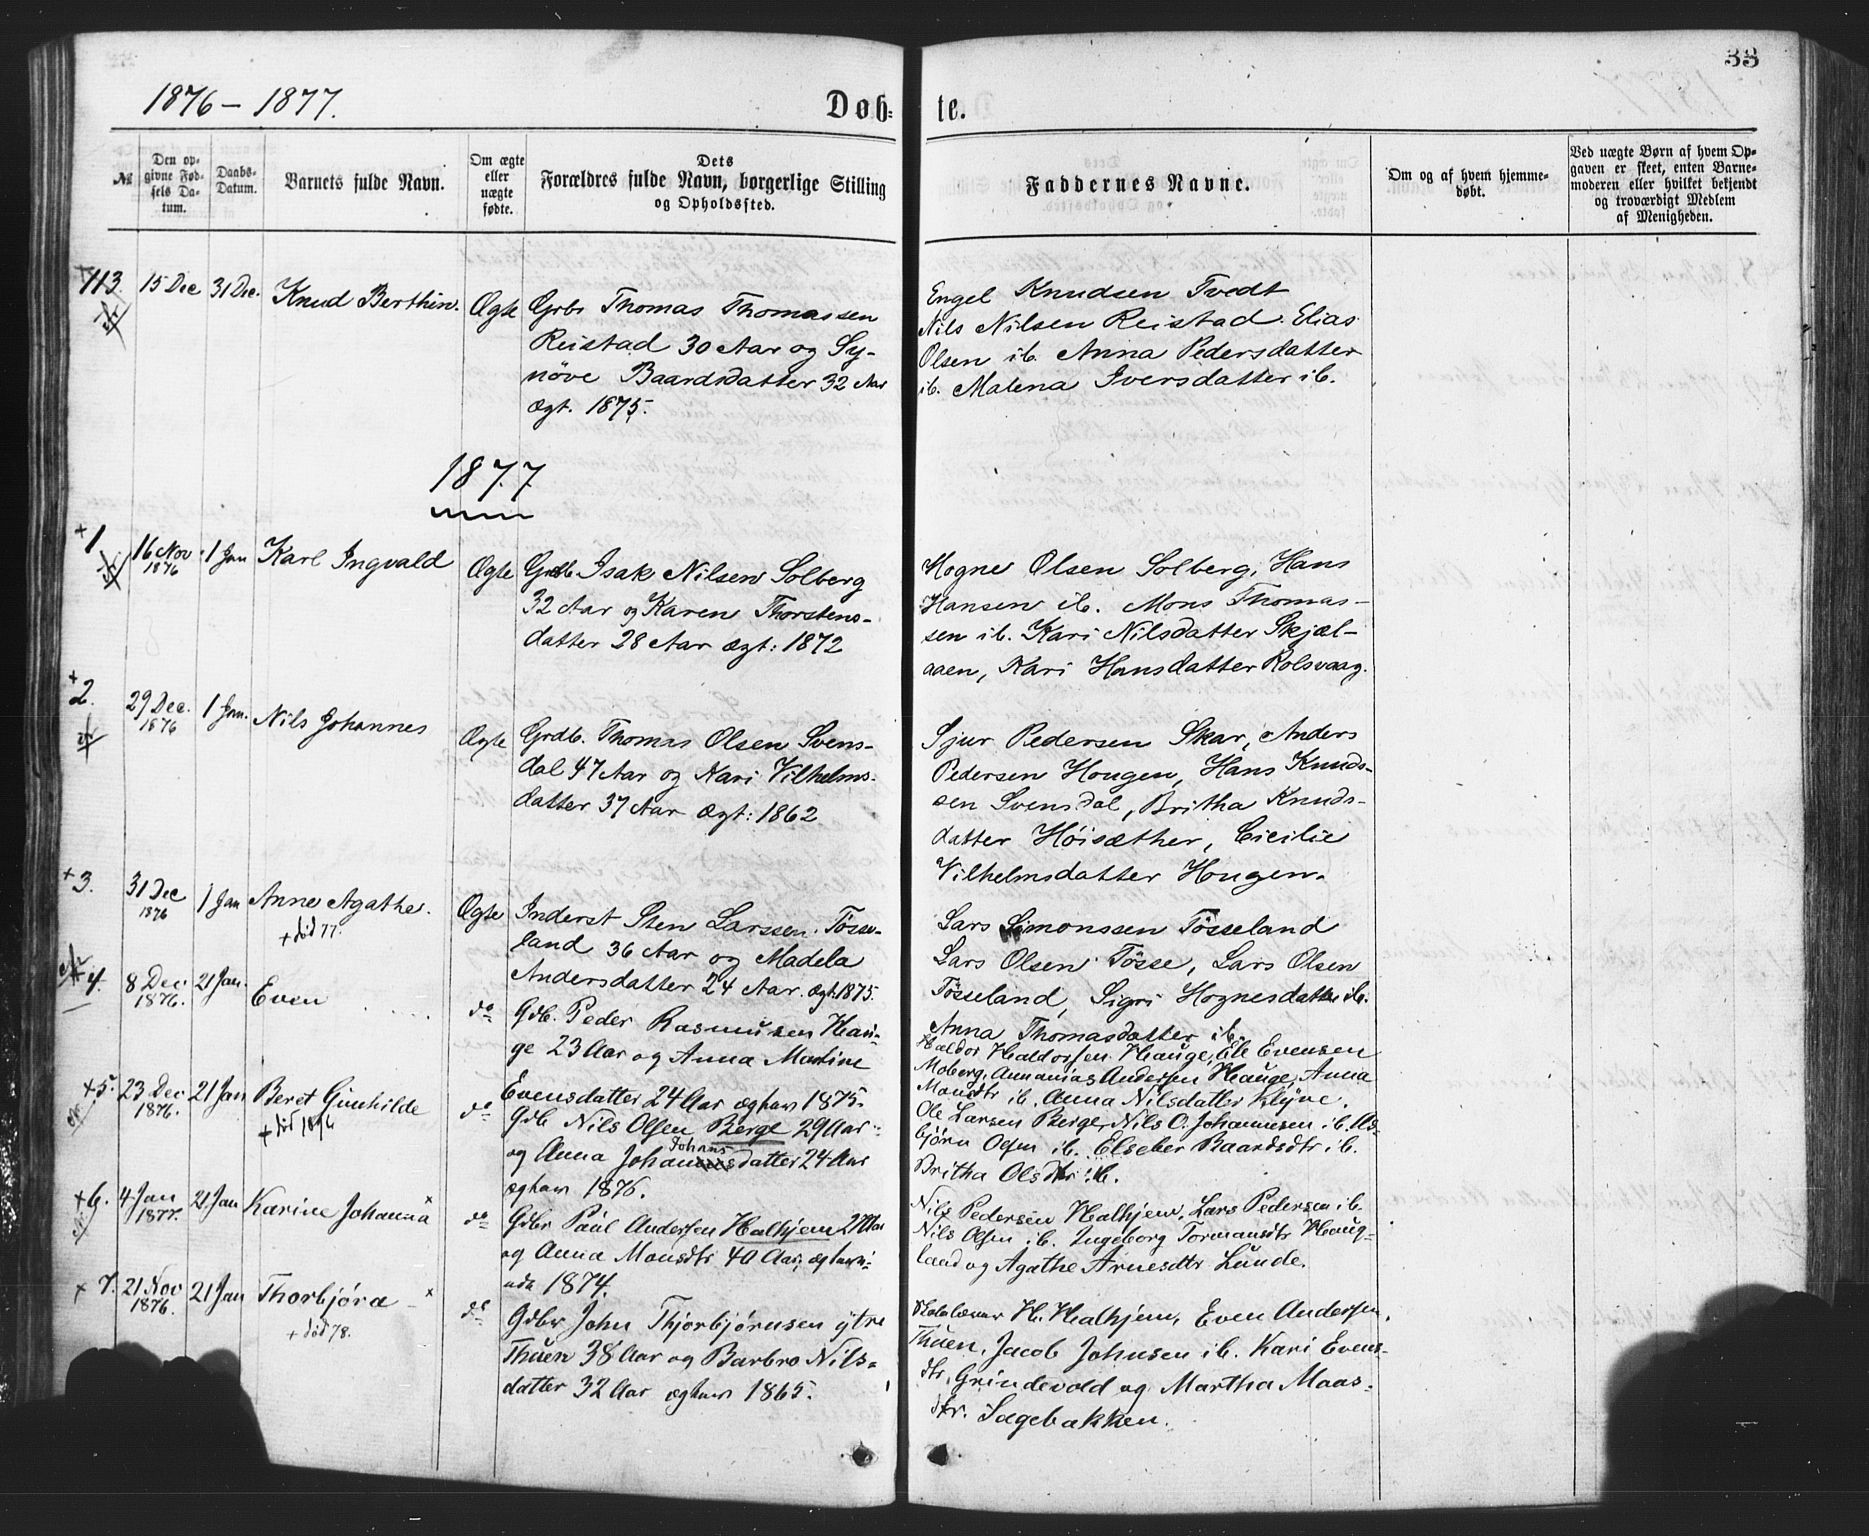 33
1876 – 1877.
Døb=
te.
№
Den opgivne Fødsels Datum.
Daabs-Datum.
Barnets fulde Navn.
Om ægte eller uægte fødte.
Dets Forældres fulde Navn, borgerlige Stilling og Opholdssted.
Faddernes Navne.
Om og af hvem hjemmedøbt.
Ved uægte Børn af hvem Opgaven er skeet, enten Barnemoderen eller hvilket bekjendt og troværdigt Medlem af Menigheden.
113. 15 Dec 31 Dec. Knud Berthin. Ægte
Grbr Thomas Thomassen
Reistad 30 Aar og Sy-
nøve Baardsdatter 32 Aar
ægt. 1875.
Engel Knudsen Tvedt
Nils Nilsen Reistad. Elias
Olsen ib. Anna Pedersdatter
ib. Malena Iversdatter ib.
1877
+1 16 Nov 1876 1 Jan Karl Ingvald Ægte
Grdb. Isak Nilsen Solberg
32 Aar og Karen Thorstens-
datter 28 Aar ægt: 1872
Mogne Olsen Solberg, Hans
Hansen ib. Mons Thomas-
sen ib. Kari Nilsdatter Skjæl-
aaen, Kari Hansdatter Rolsvaag.
+2. 29 Dec. 1876 1 Jan. Nils Johannes Ægte
Grdb. Thomas Olsen Svens-
dal 47 Aar og Kari Vilhelms-
datter 37 Aar Ægt: 1862
Sjur Pedersen Skar, Anders
Pedersen Hougen, Hans Knuds-
sen Svensdal, Britha Knuds-
datter Høisæther, Cicilie
Vilhelmsdatter Hougen.
+3. 31 Dec 1876 1 Jan Anne Agathe. Ægte
+ død 77.
Inderst Sten Larssen Tøsse-
land 36 Aar og Madela
Andersdatter 24 Aar. ægt. 1875.
Lars Simonssen Tøsseland
Lars Olsen Tøsse, Lars Olsen
Tøsseland, Sigri Hognesdatter ib.
Anna Thomasdatter ib.
4. 8 Dec 1876. 21 Jan. Even do
Gdb. Peder Rasmussen Hau-
ge 23 Aar og Anna Martine
Evensdatter 24 Aar ægtav 1875.
Haldor Haldorsen Hauge, Ole Evensen
Moberg, Annanias Andersen Hauge, Anna
Monsdtr ib. Anna Nilsdatter Klyve.
+5. 23 Dec 1876. 21 Jan Beret Gunhilde do
+ død 1896
Gdb Nils Olsen Berge 29 Aar
og Anna Johannesdatter 24 Aar
Johans
ægtav 1876.
Ole Larsen Berge, Nils O. Johannesen ib. As-
bjørn Olsen ib. Elseber Baardsdtr ib.
Britha Olsdtr ib.
+6. 4 Jan 1877. 21 Jan Karine Johanna x do
Gdbr Paul Andersen Halhjem 27 Aar
og Anna Monsdtr 40 Aar, ægtavi-
ede 1874.
Nils Pedersen Halhjem, Lars Pedersen ib.
Nils Olsen ib. Ingeborg Tormansdtr Haug-
land og Agathe Arnesdtr Lunde.
+ 7. 21 Nov 1876. 21 Jan Thorbjøra – x do
+ død 78.
Gdbr John Thjorbjørnsen ytre
Thuen 38 Aar og Barbro Nils-
datter 32 Aar ægtav 1865.
H. Halhjem, Even Andersen
Thuen, Jacob Johnsen ib. Kari Evens-
dtr. Grindevold og Martha Maas-
dtr. Sagebakken.